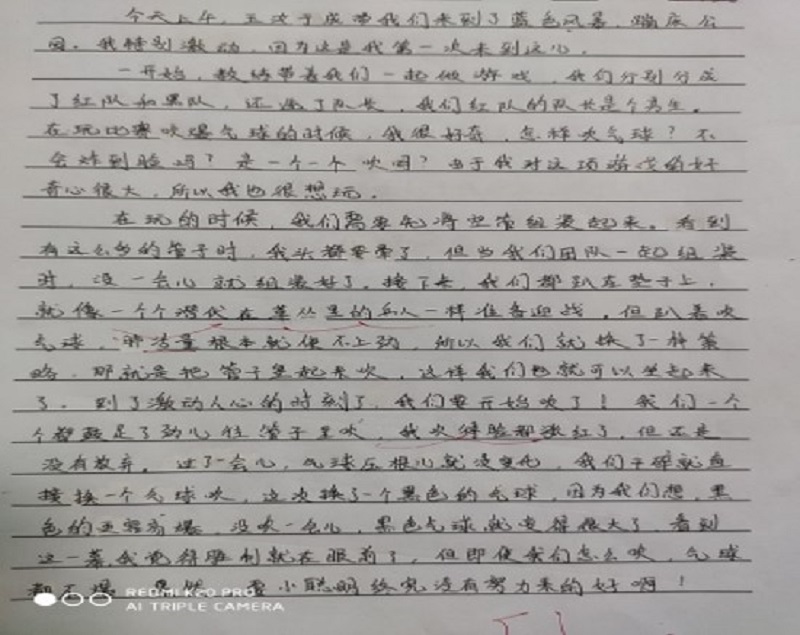 今天上午,五一于成带我们来到了蓝色风暴,蹦床公
园。我特别激动,因为这是我第一次来到这儿。
一开始,教练带着我们一起做游戏,我们分别分成
了红队和黑队,还选了队长,我们红队的队长是个高生。
在玩比赛吹爆气球的时候,我很好奇,怎样吹气球?不
会炸到脸吗?是一个一个吹吗?由于我对这项游戏的好
奇心很大,所以我也很想玩。
在玩的时候,我们需要先将空管组装起来。看到
有这么多的管子时,我头都要晕了,但当我们团队一起组装
时,没一会儿就组装好了。接下来,我们都趴在垫子上,
就像一个个潜伏在草丛里的兵人一样准备迎战。但趴着吹
气球,肺活量根本就使不上劲,所以我们就换了一种策
略,那就是把管子竖起来吹,这样我们也就可以坐起来
了。到了激动人心的时刻了,我们要开始吹了!我们一个
个都鼓足了劲儿往管子里吹,我吹得脸都涨红了,但还是
没有放弃。过了一会儿,气球压根儿就没变化,我们干脆就直
接换一个气球吹,这次换了一个黑色的气球,因为我们想,黑
色的更容易爆,没吹一会儿,黑色气球就变得很大了,看到
这一幕我觉得胜利就在眼前了,但即使我们怎么吹,气球
都不爆,果然,耍小聪明终究没有努力来的好啊!
REDMI K20 PRO
AI TRIPLE CAMERA